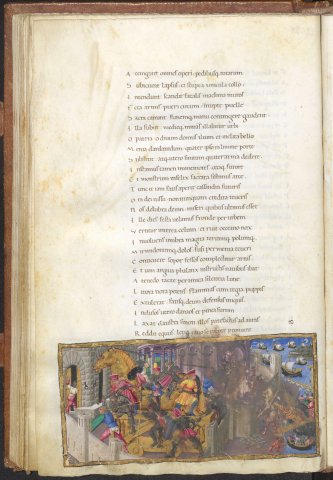 A ccingunt omnes operi. pedibusq; rotarum
S ubiciunt lapsus. et stupea uincula collo
I ntendunt. scandit fatalis machina muros
F eta armis. pueri circum innupteq; puelle
S acra canunt. funemq; manu contingere gaudent
I lla subit medieq; minans illabitur urbi
O patria o diuum domus ilium et inclita bello
M enia dardanidum. quater ipso in limine porte
S ubstitit. atq; utero sonitum quater arma dedere
I nstamus tamen immemores cecíq; furore
E t monstrum infelix sacrata sistimus arce
T unc etiam fatis aperit cassandra futuris
O ra dei iussu non unquam credita teucris
N os delubra deum miseri quibus ultimus esset
I lle dies festa uelamus fronde per urbem
V ertitur interea celum et ruit oceano nox
I nuoluens umbra magna terramq; polumq;
M irmidonumq; dolos fusi per menia teucri
C onticuere sopor fessos complectitur artus
E t iam argiua phalanx instructis nauibus ibat
A tenedo tacite per amica silentia lune
L itora nota petens. flammas cum regia puppis
E xtulerat. fatisq; deum defensus iniquis
I nclusos utero danaos et pinea furtim
L axat claustra sinon. illos patefactus ad auras
R eddit equus. letiq; cauo se robore promunt